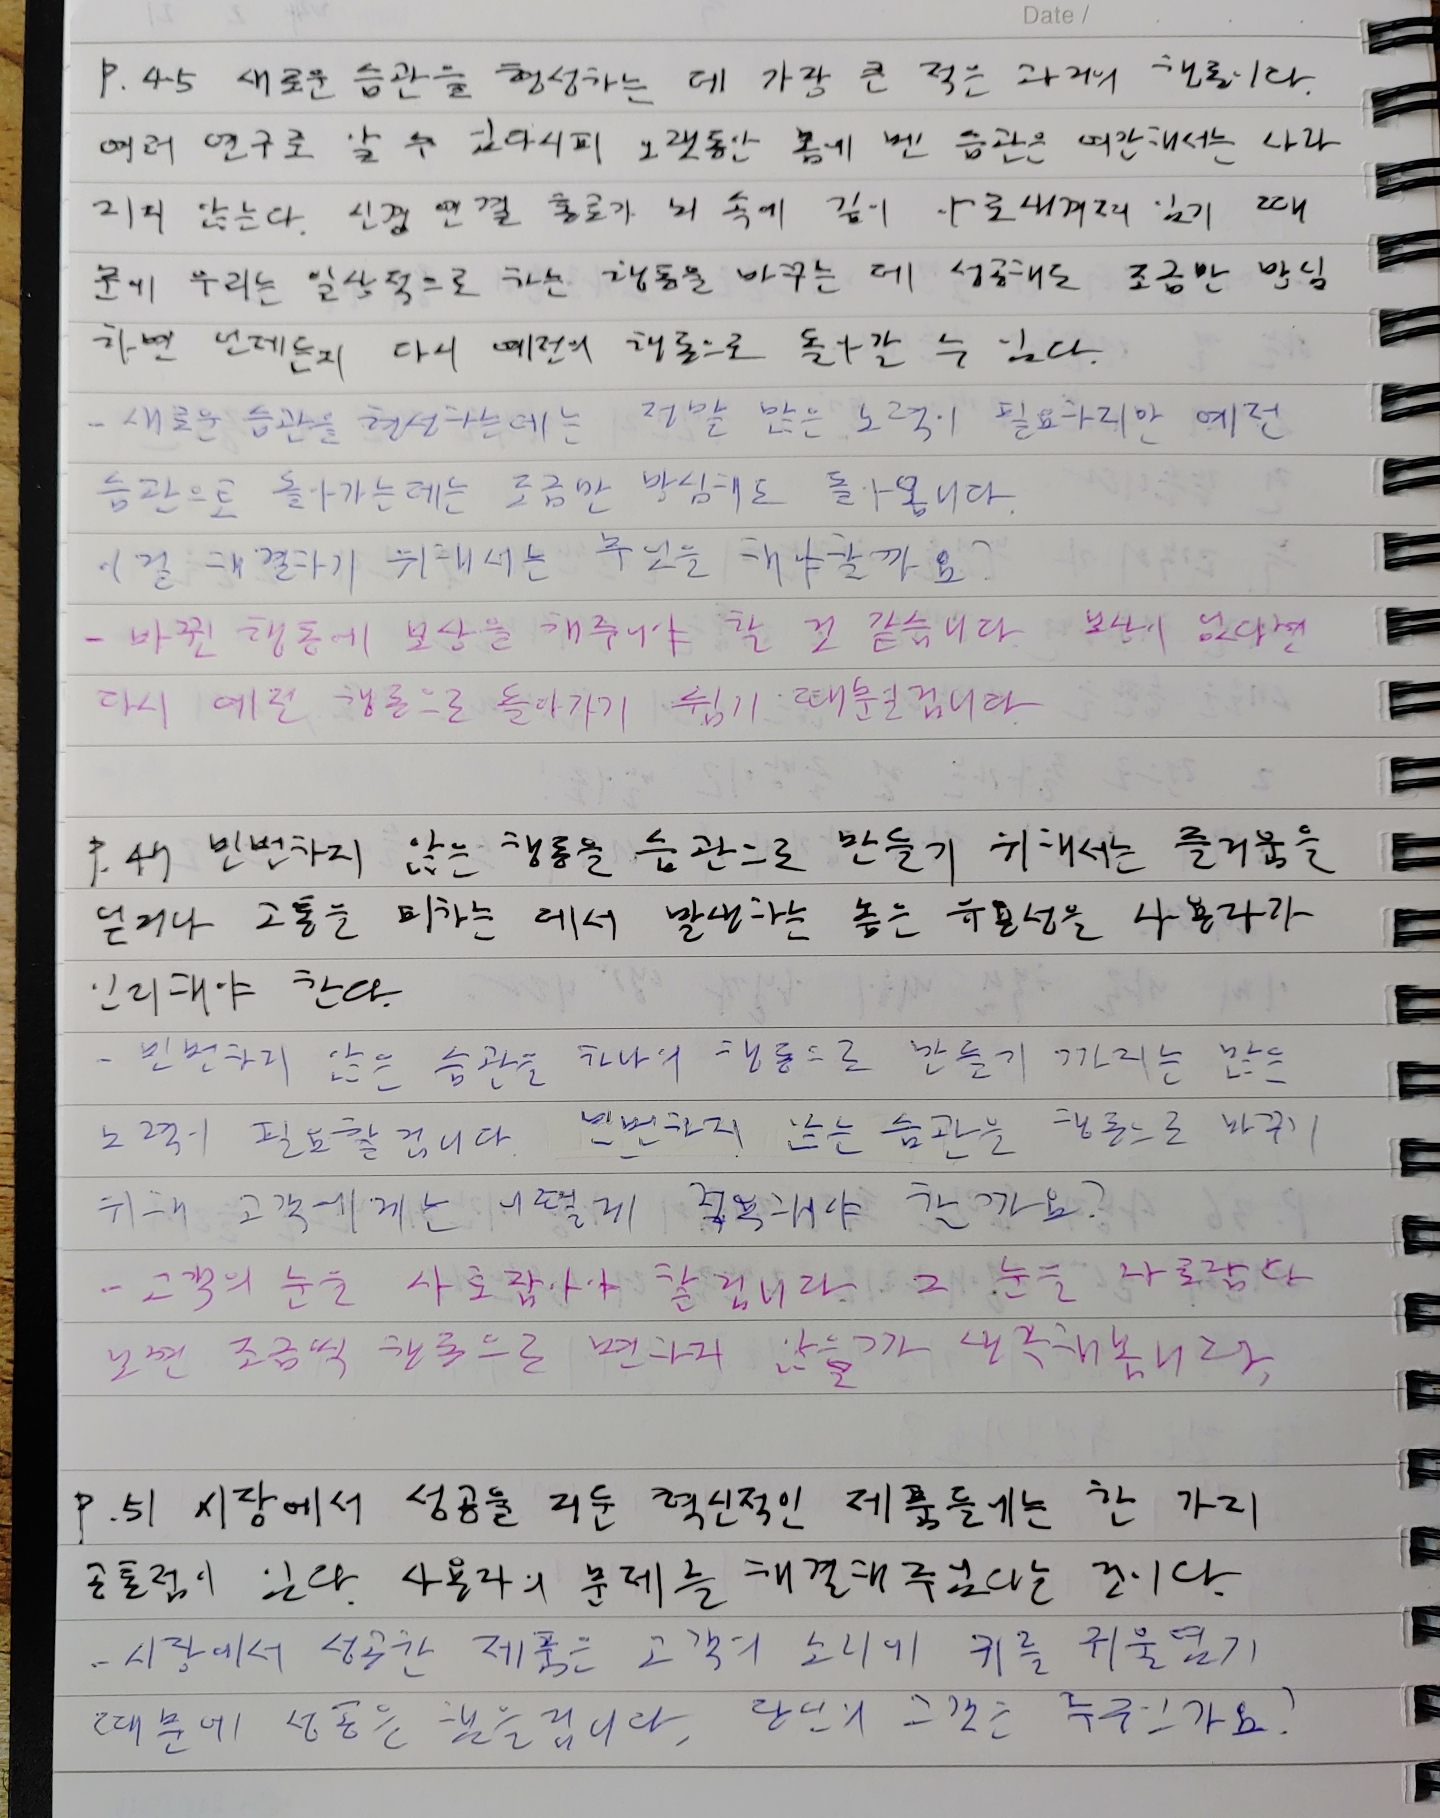 Date /
P.45 새로운 습관을 형성하는 데 가장 큰 적은 과거의 행동이다.
여러 연구로 알 수 있다시피 오랫동안 몸에 벤 습관은 여간해서는 사라
지지 않는다. 신경 연결 통로가 뇌 속에 깊이 아로새겨져 있기 때
문에 우리는 일상적으로 하는 행동을 바꾸는 데 성공해도 조금만 방심
하면 언제든지 다시 예전의 행동으로 돌아갈 수 있다.
- 새로운 습관을 형성하는데는 정말 많은 노력이 필요하지만 예전
습관으로 돌아가는데는 조금만 방심해도 돌아옵니다.
이걸 해결하기 위해서는 무엇을 해야할까요?
- 바뀐 행동에 보상을 해주어야 할 것 같습니다 보상이 없다면
다시 예전 행동으로 돌아가기 쉽기 때문일겁니다
P.49 빈번하지 않은 행동을 습관으로 만들기 위해서는 즐거움을
얻거나 고통을 피하는 데서 발생하는 높은 유용성을 사용자가
인지해야 한다.
- 빈번하지 않은 습관을 하나의 행동으로 만들기 까지는 많은
노력이 필요할겁니다. 빈번하지 않는 습관을 행동으로 바꾸기
위해 고객에게는 어떻게 접목해야 할까요?
- 고객의 눈을 사로잡아야 할겁니다 그 눈을 사로잡다
보면 조금씩 행동으로 변하지 않을까 생각해봅니다.
P.51 시장에서 성공을 거둔 혁신적인 제품들에는 한 가지
공통점이 있다. 사용자의 문제를 해결해주었다는 것이다.
- 시장에서 성공한 제품은 고객의 소리에 귀를 귀울였기
때문에 성공을 했을겁니다, 당신의 고객은 누구인가요?